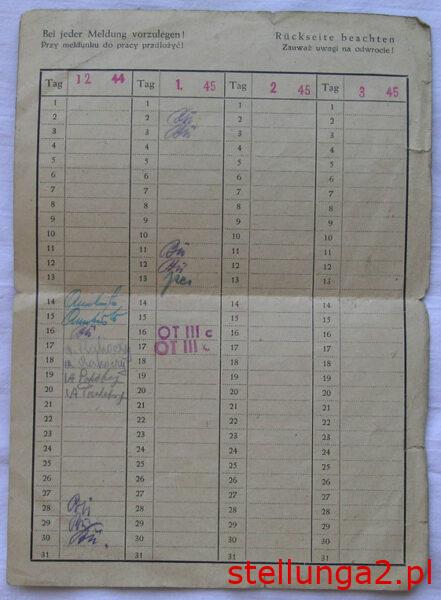 Bei jeder Meldung vorzulegen!
Przy meldunku do pracy przedłożyć!
Rückseite beachten
Zauważ uwagi na odwrocie!
Tag 12 44 Tag 1. 45 Tag 2 45 Tag 3 45
1 1 1 1
2 2 2 2
3 3 3 3
4 4 4 4
5 5 5 5
6 6 6 6
7 7 7 7
8 8 8 8
9 9 9 9
10 10 10 10
11 11 11 11
12 12 12 12
13 13 13 13
14 14 14 14
15 15 15 15
16 16 OT III c 16 16
17 17 OT III c 17 17
18 18 18 18
19 19 19 19
20 20 20 20
21 21 21 21
22 22 22 22
23 23 23 23
24 24 24 24
25 25 25 25
26 26 26 26
27 27 27 27
28 28 28 28
29 29 29 29
30 30 30 30
31 31 31 31
stellunga2.pl